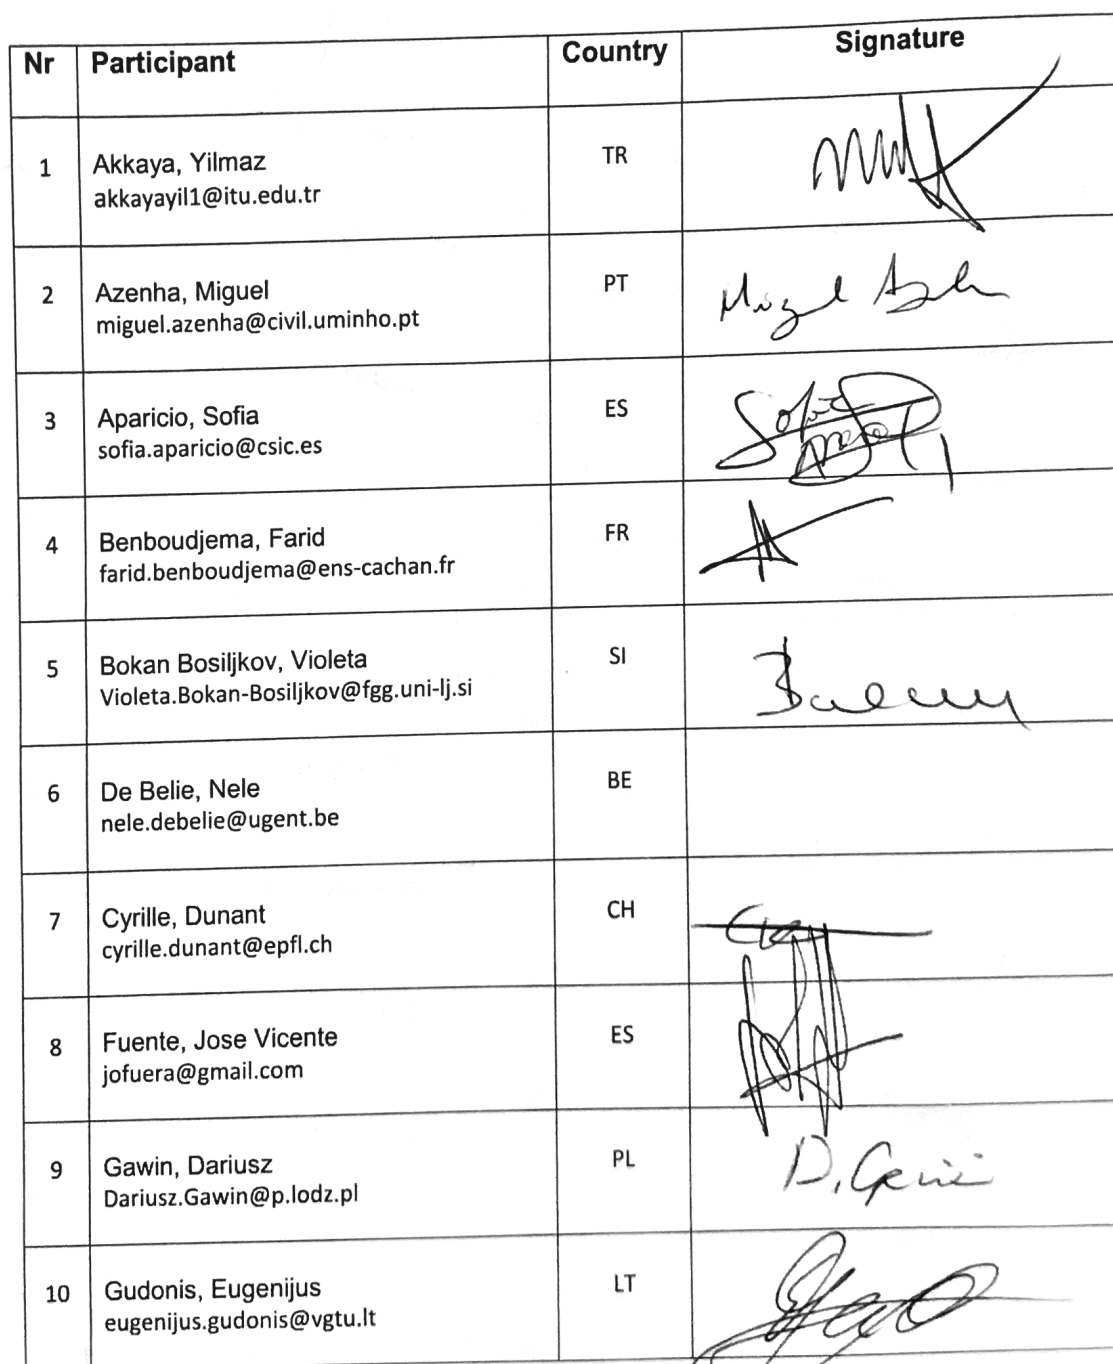 Nr Participant Country Signature
1 Akkaya, Yilmaz TR
akkayayil1@itu.edu.tr
2 Azenha, Miguel PT Miguel
miguel.azenha@civil.uminho.pt
3 Aparicio, Sofia ES Sofia
sofia.aparicio@csic.es
4 Benboudjema, Farid FR
farid.benboudjema@ens-cachan.fr
5 Bokan Bosiljkov, Violeta SI
Violeta.Bokan-Bosiljkov@fgg.uni-lj.si
6 De Belie, Nele BE
nele.debelie@ugent.be
7 Cyrille, Dunant CH
cyrille.dunant@epfl.ch
8 Fuente, Jose Vicente ES
jofuera@gmail.com
9 Gawin, Dariusz PL D.
Dariusz.Gawin@p.lodz.pl
10 Gudonis, Eugenijus LT
eugenijus.gudonis@vgtu.lt